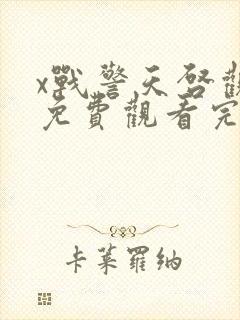 x戰警天啓觀
免費觀看完
卡莱羅納